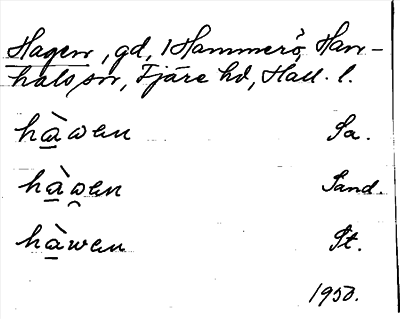 Hagen, gd, i Hammerö, Han-
hals sn, Fjäre hd, Hall. l.
hàwen Sa.
hàwen Sand.
hàwen St.
1950.